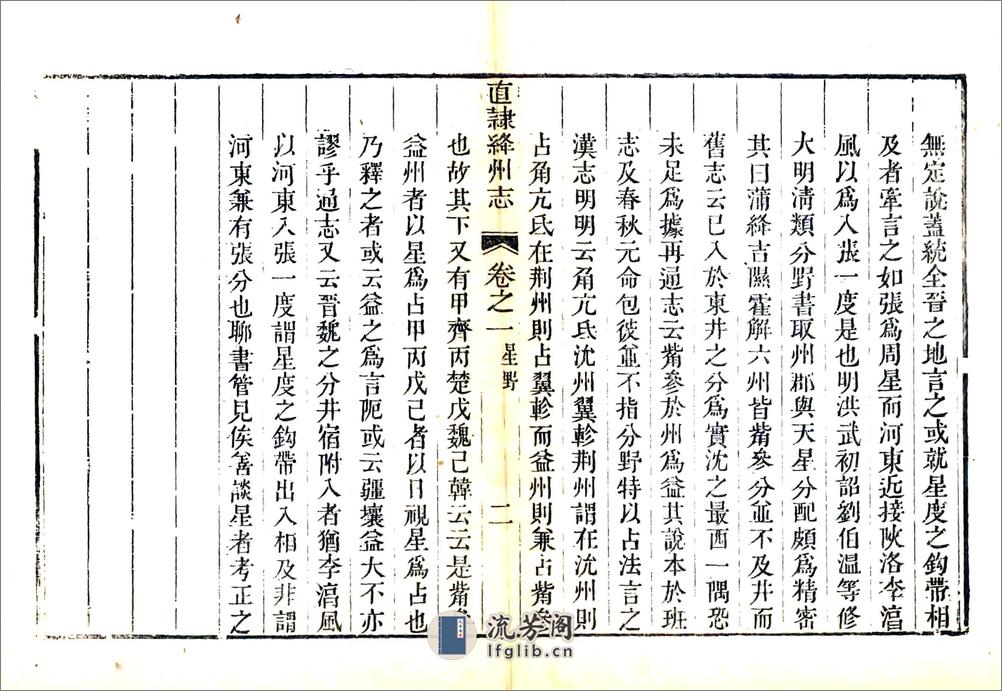 無定說蓋統全晉之地言之或就星度之鈎帶相
及者牽言之如張爲周星而河東近接陝洛李淳
風以爲入張一度是也明洪武初詔劉伯温等修
大明淸類分野書取州郡與天星分配頗爲精密
其曰蒲絳吉隰霍解六州皆觜參分並不及井而
舊志云已入於東井之分爲實沈之最西一隅恐
未足爲據再通志云觜參於州爲益其說本於班
志及春秋元命包彼並不指分野特以占法言之
漢志明明云角亢氐沇州翼軫荆州謂在沇州則
占角亢氐在荆州則占翼軫而益州則兼占觜參
直隸絳州志 卷之一 星野 二
也故其下又有甲齊丙楚戊魏己韓云云是觜
益州者以星爲占甲丙戊己者以日視星爲占也
乃釋之者或云益之爲言阨或云疆壤益大不亦
謬乎通志又云晉魏之分井宿附入者猶李淳風
以河東入張一度謂星度之鈎帶出入相及非謂
河東兼有張分也聊書管見俟善談星者考正之
流芳阁
lfglib.cn